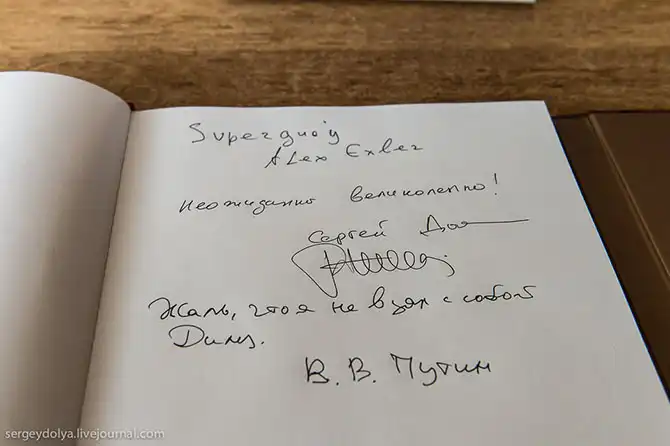 Superguóy
Alex Exler
Неожиданно великолепно!
Сергей До
Жаль, что я не взял с собой
Диму.
В. В. Путин
sergeydolya.livejournal.com